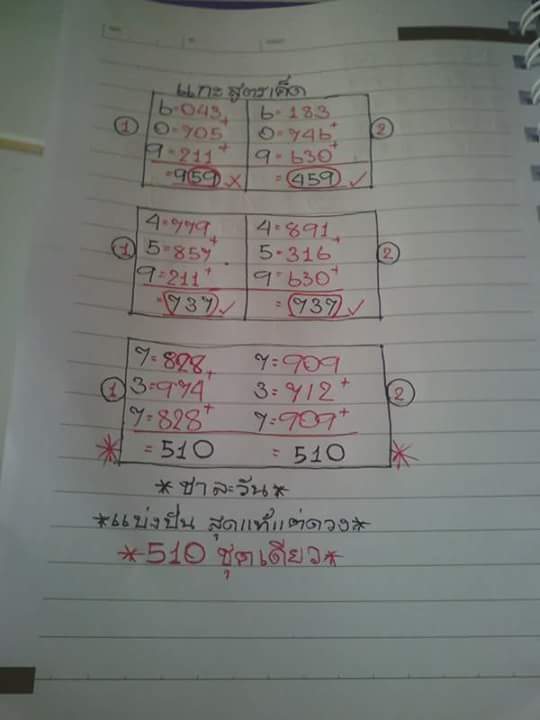 แกะสูตรเด็ด
6=043 6=183
① 0=705+ 0=746+ ②
9=211+ 9=630+
=959 x =459 ✓
4=779 4=891
① 5=857+ 5=316+ ②
9=211+ 9=630+
=737 ✓ =737 ✓
7=828 7=909
① 3=974+ 3=712+ ②
7=828+ 7=909+
* =510 =510 *
*ชาละวัน*
*แบ่งปัน สุดแท้แต่ดวง*
*510 ชุดเดียว*